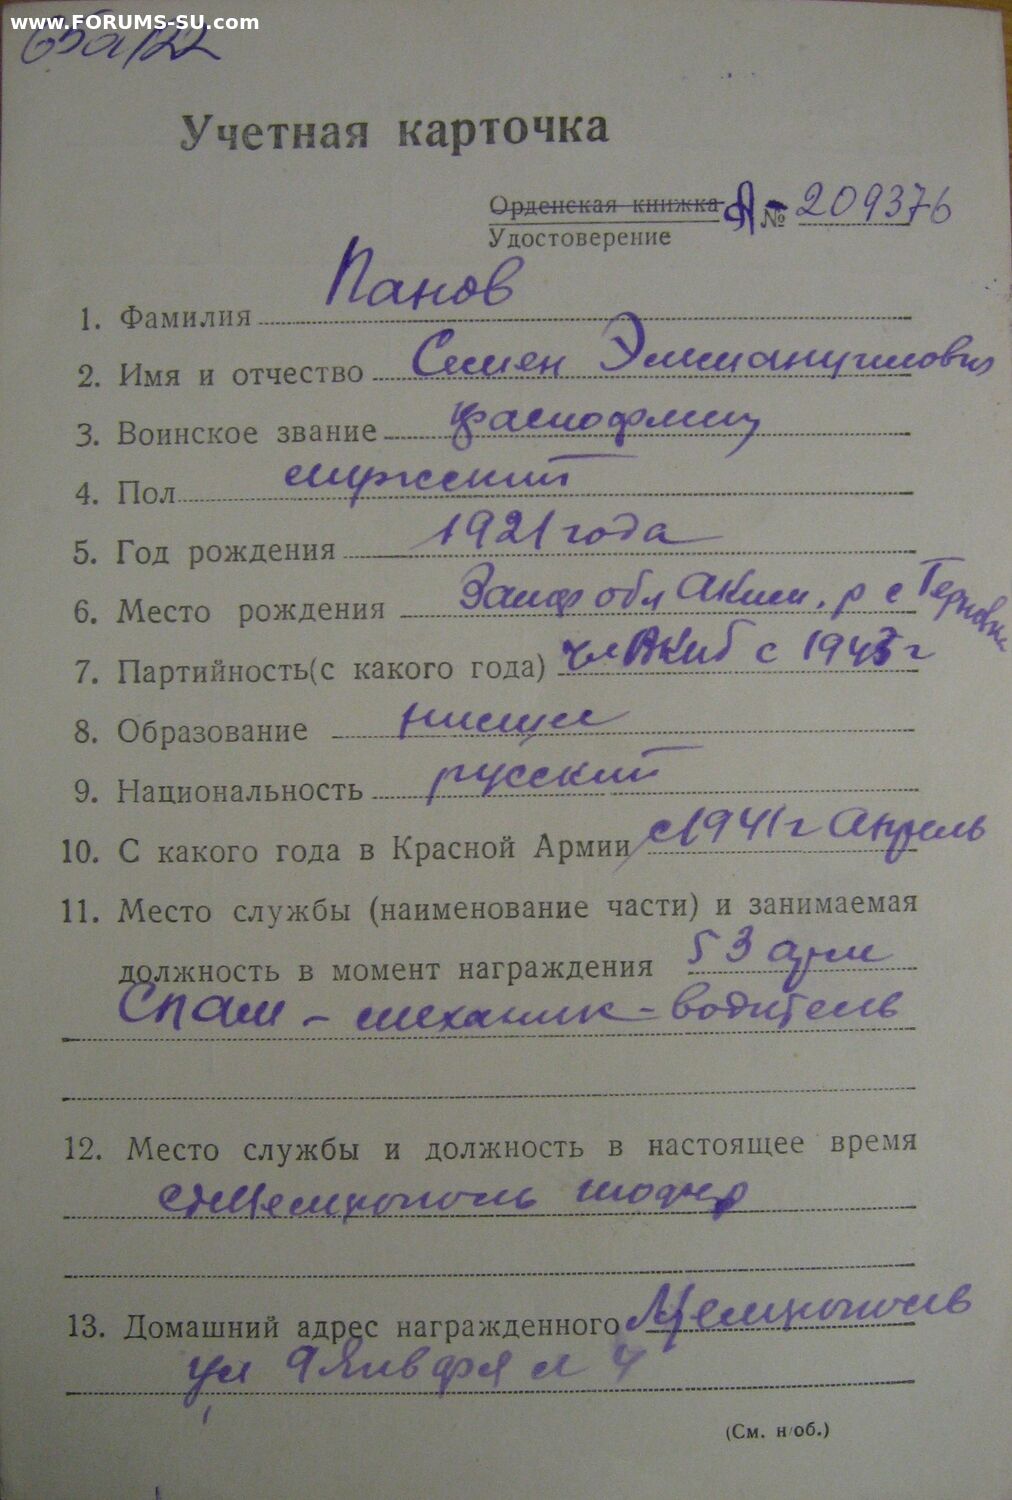 www.FORUMS-SU.com
65а/22
Учетная карточка
Орденская книжка А № 209376
Удостоверение
1. Фамилия Панов
2. Имя и отчество Семен Эммануилович
3. Воинское звание красноармеец
4. Пол мужский
5. Год рождения 1921 года
6. Место рождения Запор обл Аким. р с Терновка
7. Партийность(с какого года) чл ВКПб с 1943 г
8. Образование низшее
9. Национальность русский
10. С какого года в Красной Армии с 1941 г Апрель
11. Место службы (наименование части) и занимаемая
должность в момент награждения 53 арм
СПАМ - механик-водитель
12. Место службы и должность в настоящее время
шофер
13. Домашний адрес награжденного
ул 9 Января 4
(См. н/об.)